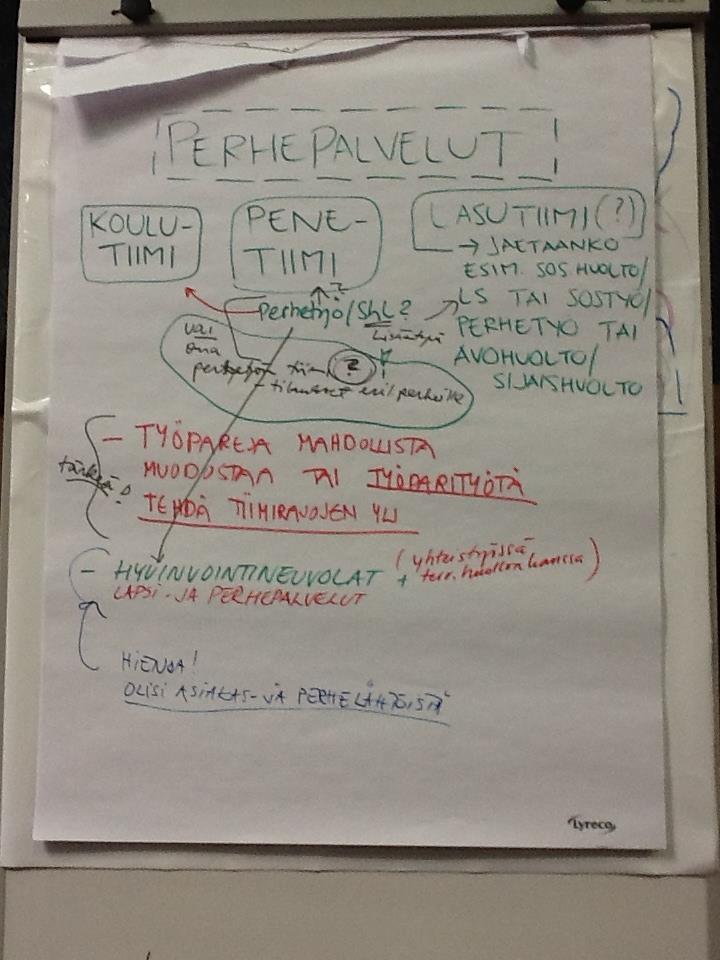 PERHEPALVELUT
KOULU-
TIIMI
PENE-
TIIMI
LASUTIIMI (?)
→ JAETAANKO
ESIM. SOS HUOLTO/
LS TAI SOSTYÖ/
PERHETYÖ TAI
AVOHUOLTO/
SIJAISHUOLTO
?
Perhetyö/ShL?
Lisätyö
vai
oma
perhetyön tiimi ?
- tilanteet eril perheille
- TYÖPAREJA MAHDOLLISTA
MUODOSTAA TAI TYÖPARITYÖTÄ
TEHDÄ TIIMIRAJOJEN YLI
tärkeä!
- HYVINVOINTINEUVOLAT
LAPSI- JA PERHEPALVELUT
+ (yhteistyössä
terv.huollon kanssa)
HIENOA!
OLISI ASIAKAS- JA PERHELÄHTÖISTÄ
Lyreco